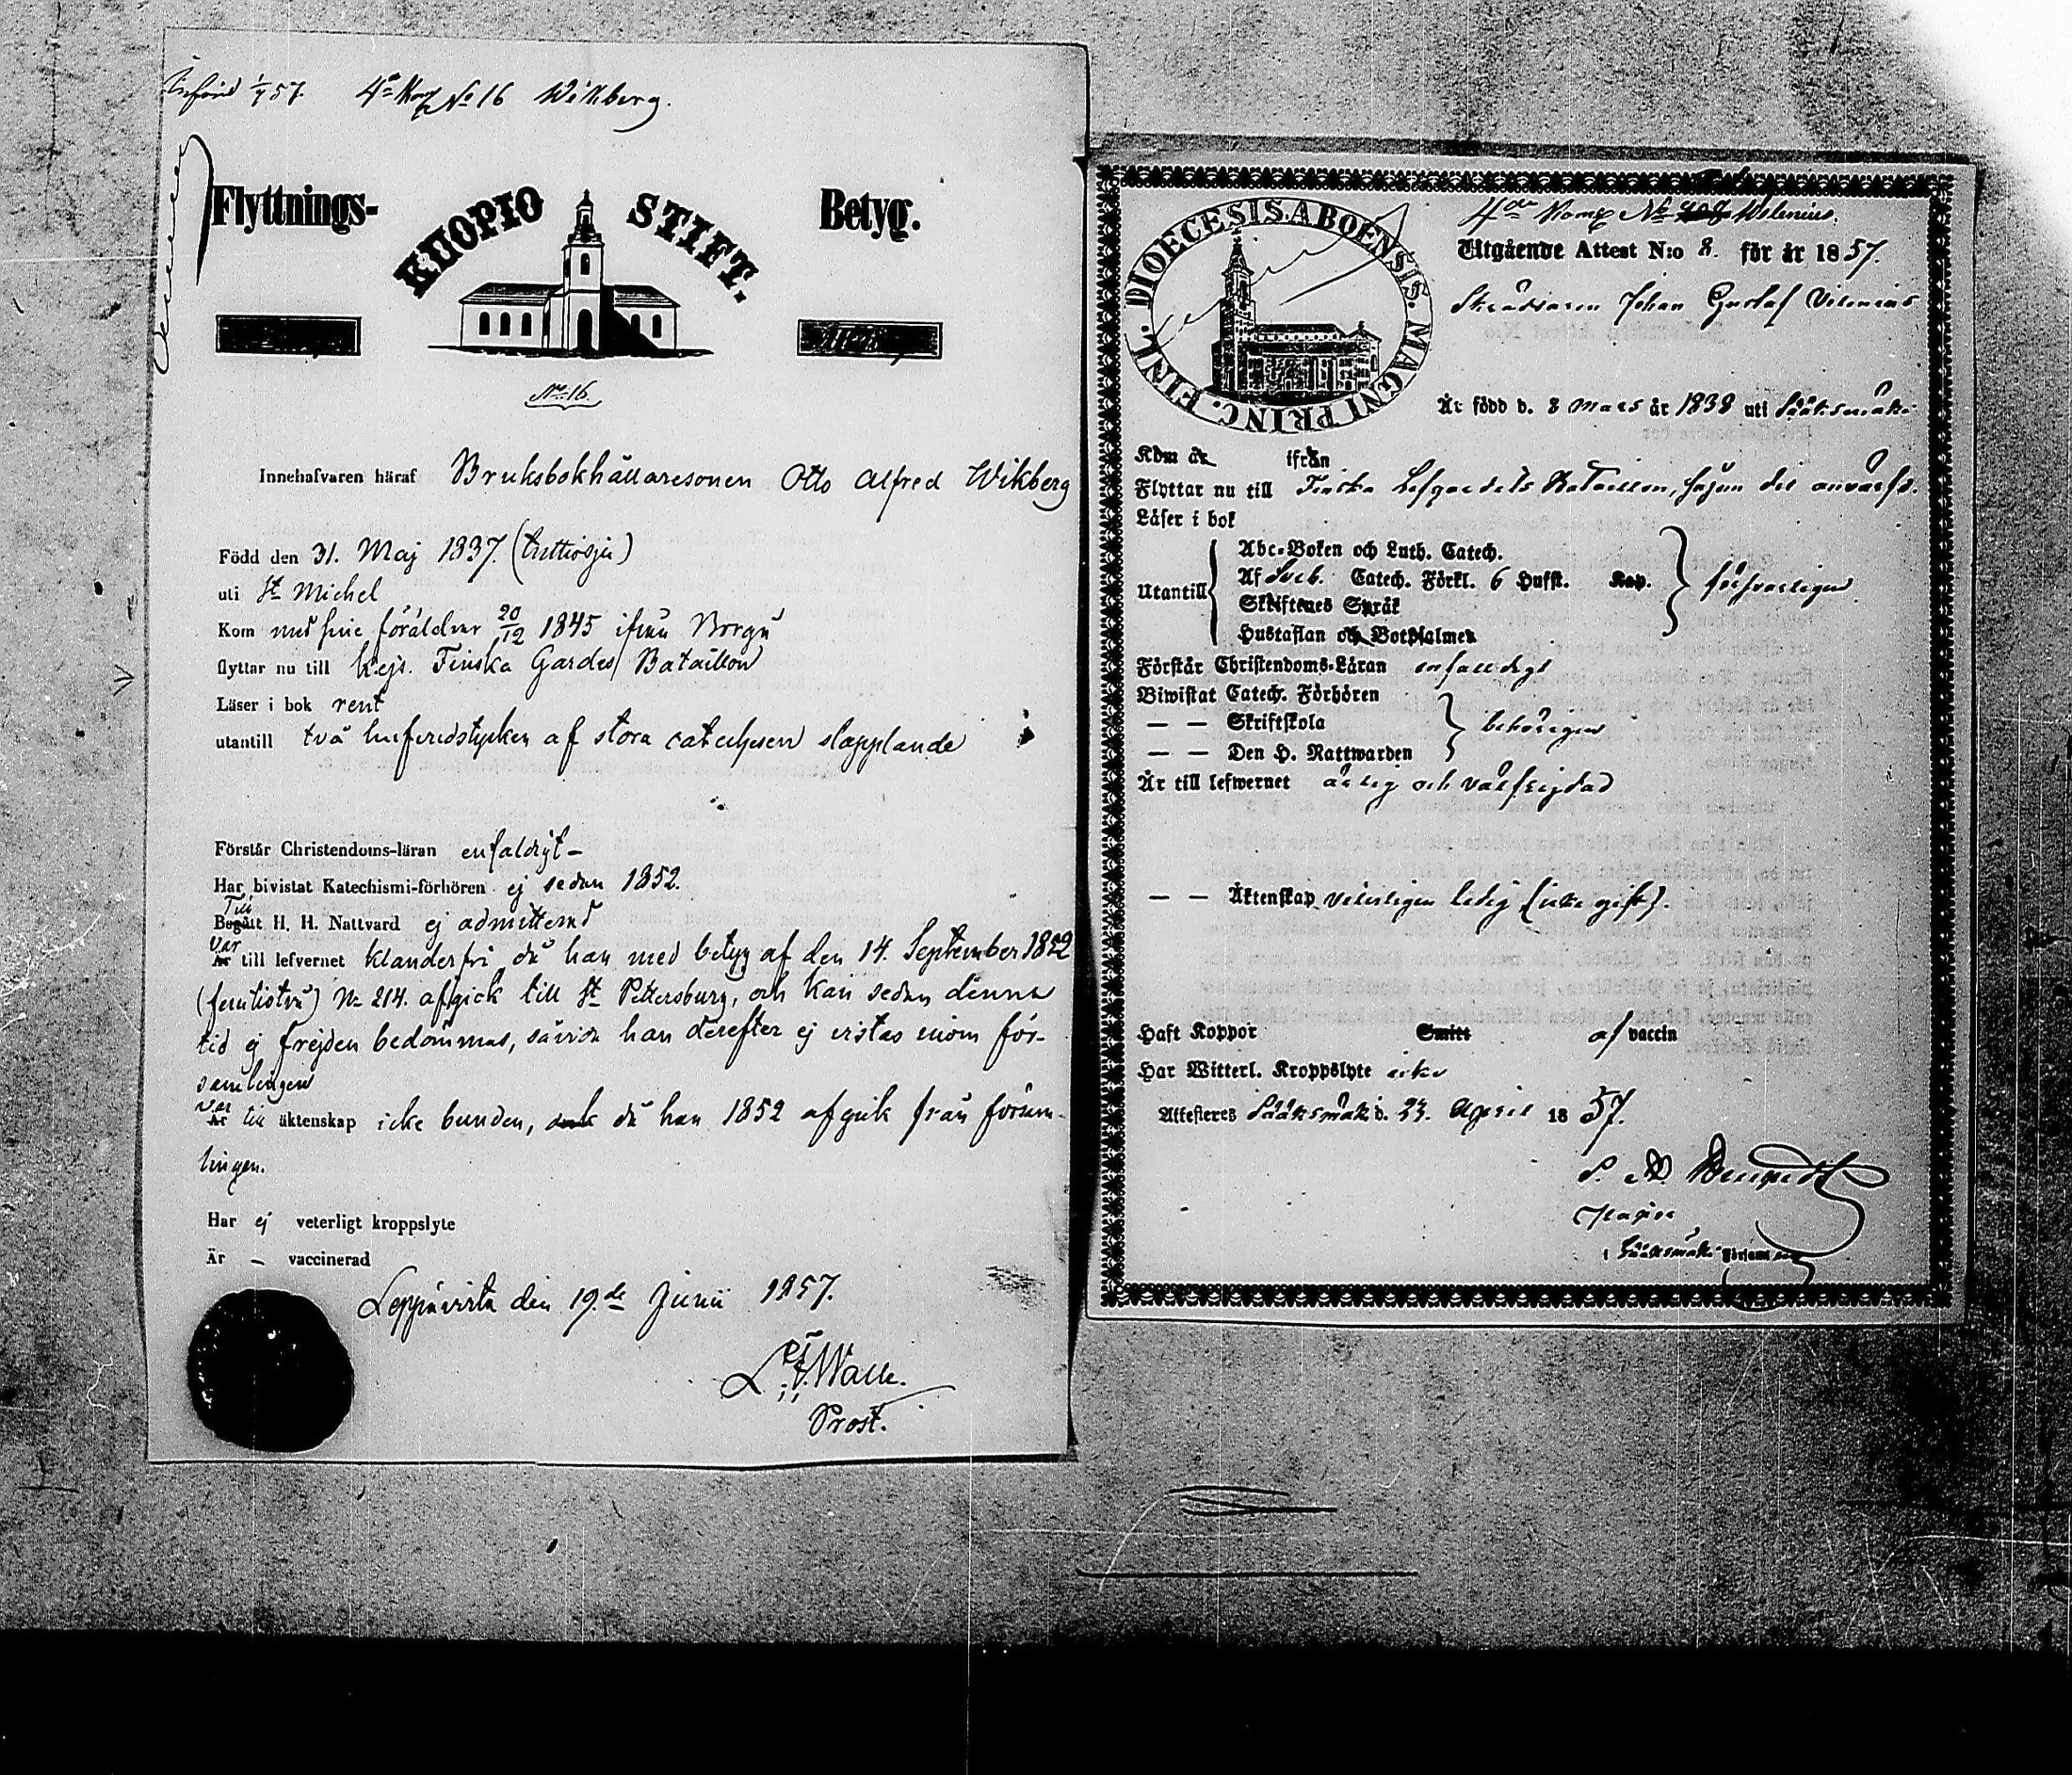 Införd 1/7 57. 4de Komp No 16 Wikberg.
Flyttnings- KUOPIO STIFT. Betyg.
No 16.
Innehafvaren häraf Bruksbokhållaresonen Otto Alfred Wikberg
Född den 31. Maj 1837. (trettiosju)
uti St Michel
Kom med sine föräldrar 20/12 1845 ifrån Borgå
flyttar nu till Kejs. Finska Gardes Bataillon
Läser i bok rent
utantill två hufvudstycken af stora catechesen slapplande
Förstår Christendoms-läran enfaldigt –
Har bivistat Katechismi-förhören ej sedan 1852.
Till
Begått H. H. Nattvard ej admitterad
Var
Är till lefvernet klanderfri, då han med betyg af den 14. September 1852
(femtiotvå) No 214. afgick till St Pettersburg, och kan sedan denna
tid ej frejden bedömmas, såvida han derefter ej vistas inom för-
samlingen
var
Är till äktenskap icke bunden, då han 1852 afgick från försam-
lingen.
Har ej veterligt kroppslyte
Är – vaccinerad
Leppävirta den 19.de Junii 1857.
Walle.
Prost.
DIOECESIS ABOENSIS. MAGNI PRINC. FINL.
4de Komp No Wilenius.
Utgående Attest N:o 8. för år 1857.
Skräddaren Johan Gustaf Vilenius
Är född d. 8 Mars år 1838 uti Sääksmäki
Kom år ifrån
Flyttar nu till Finska Lifgardets Bataillon, såsom der anvärfd.
Läser i bok
Abc-Boken och Luth. Catech.
Utantill Af Sveb. Catech. Förkl. 6 Hufst. Kap. försvarligen
Skriftenes Språk
Hustaflan och Botpsalmer
Förstår Christendoms-Läran enfalldigt
Biwistat Catech. Förhören
— — Skriftskola behörigen
— — Den H. Nattwarden
Är till lefwernet ärlig och välfrejdad
— — Äktenskap veterligen ledig (icke gift).
Haft Koppor Smitt af vaccin
Har Witterl. Kroppslyte icke
Attesteres Sääksmäki d. 23. April 1857.
i Sääksmäki